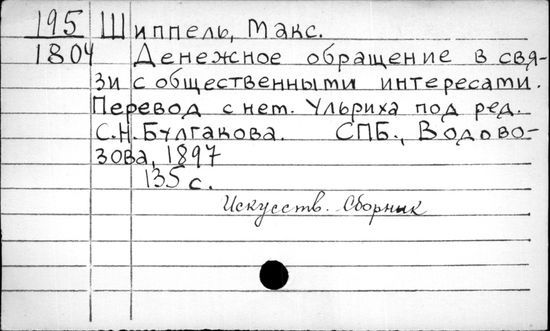 195 Шиппель, Макс.
1804 Денежное обращение в свя-
зи с общественными интересами.
Перевод с нем. Ульриха под ред.
С.Н.Булгакова. СПБ., Водово-
зова, 1897
135 с.
Искусств. Сборник